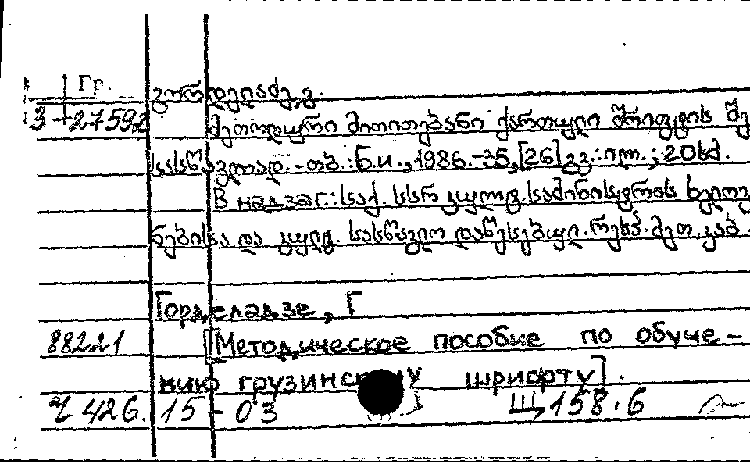 Гр.
გორდელაძე, გ.
3-27592
მეთოდური მითითებანი ქართული შრიფტის შე
სასწავლად.-თბ.:ნ.ი.,1986.-35,[26]გვ.:ილ.; 20სმ.
В надзаг.:საქ. სსრ კულტ. სამინისტროს ხელოვ
ნებისა და კულტ. სასწავლო დაწესებულ. რესპ. მეთ. კაბ.
Горделадзе, Г
88221
[Методическое пособие по обуче-
нию грузинскому шрифту].
426. 15-03
Щ158.6